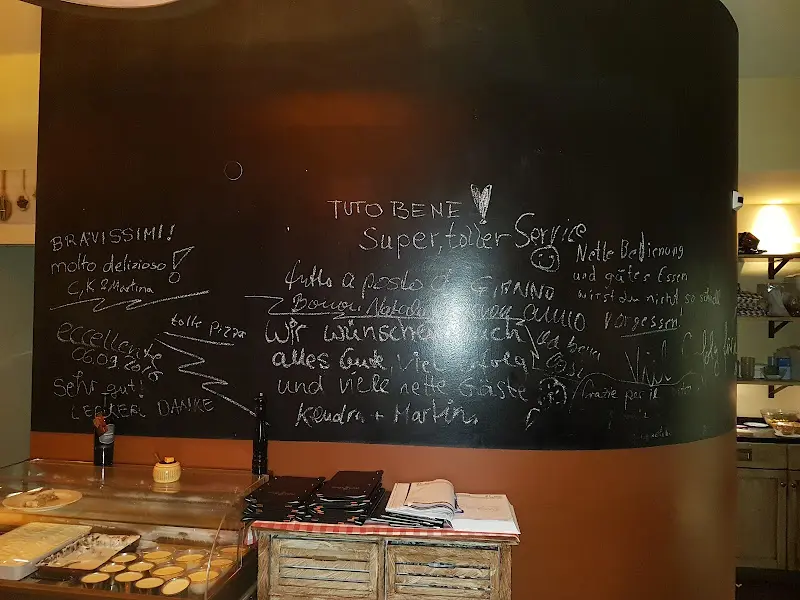 BRAVISSIMI!
molto delizioso!
C, K & Martina
eccellente
06.09.2018
tolle Pizza
Sehr gut!
LECKER DANKE
TUTO BENE!
Super, toller Service
tutto a posto a GIANNO
Buon anno
Wir wünschen Euch
alles Gute, viel Erfolg
und viele nette Gäste
Kendra + Martin.
Nette Bedienung
und gutes Essen
wirst du nicht so schnell
vergessen!
va bene
Viel Erfolg
Grazie per il